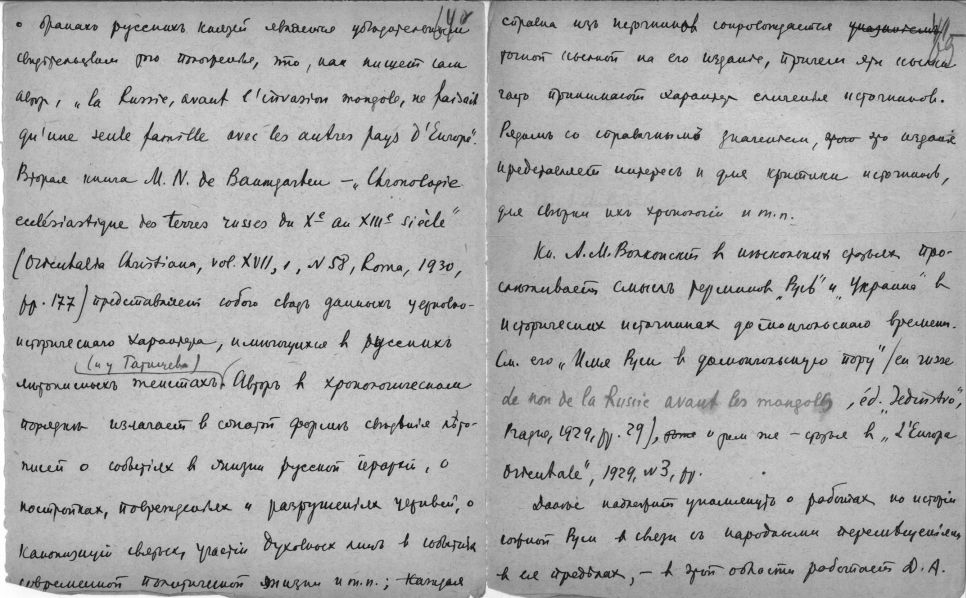 о браках русских князей является убедительным
свидетельством этого положения, что, как пишет сам
автор, „la Russie, avant l'invasion mongole, ne faisait
qu'une seule famille avec les autres pays d'Europe".
Вторая книга M. N. de Baumgarten – „Chronologie
ecclésiastique des terres russes du Xe au XIIIe siècle"
(Orientalia Christiana, vol. XVII, 1, N 58, Roma, 1930,
pp. 177) представляет собою сводъ данныхъ церковно-
историческаго характера, имеющихся в русских
(и у Татищева)
летописных текстахъ. Авторъ в хронологическом
порядке излагает в сжатой форме сведения лѣто-
писей о событиях в жизни русской iерархiи, о
постройках, повреждениях и разрушениях церквей, о
канонизации святых, участии духовных лиц в событиях
современной политической жизни и т.п.; каждая
140
справка из источников сопровождается указанием
точной ссылкой на его издание, причем эти ссылки
часто принимают характер сличения источников.
Рядомъ со справочнымъ значением, это издание
представляет интересъ и для критики источников,
для сводки их хронологiи и т.п.
Кн. А. М. Волконский в нескольких статьях про-
слеживает смыслъ терминов „Русь" и „Украина" в
исторических источниках домонгольскаго времени.
См. его „Имя Руси в домонгольскую пору" (en russe
de non de la Russie avant les mongols, éd. „Jedinstvo",
Praga, 1929, pp. 29), и там же – статья в „L'Europe
Orientale", 1929, N 3, pp.
Далѣе надлежит упомянуть о работах по исторiи
южной Руси в связи съ народными передвиженiями
в ея пределах, – в этой области работает Д. А.